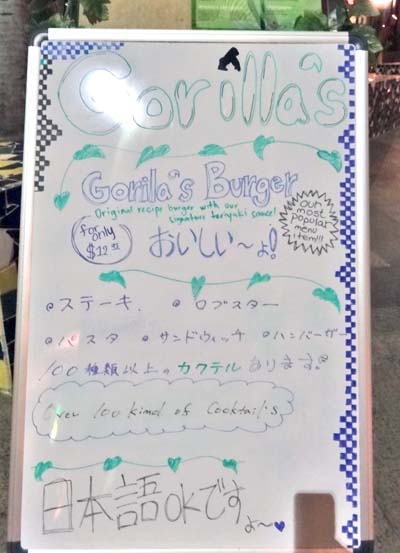 Gorilla's
Gorila's Burger
Original recipe burger with our
signature teriyaki sauce!
for only
おいしい～よ!
our
most
popular
menu
item!!!
•ステーキ. •ロブスター
•パスタ •サンドウィッチ •ハンバーガー
100種類以上のカクテルあります!
Over 100 kind of Cocktail's
日本語OKです
よ～